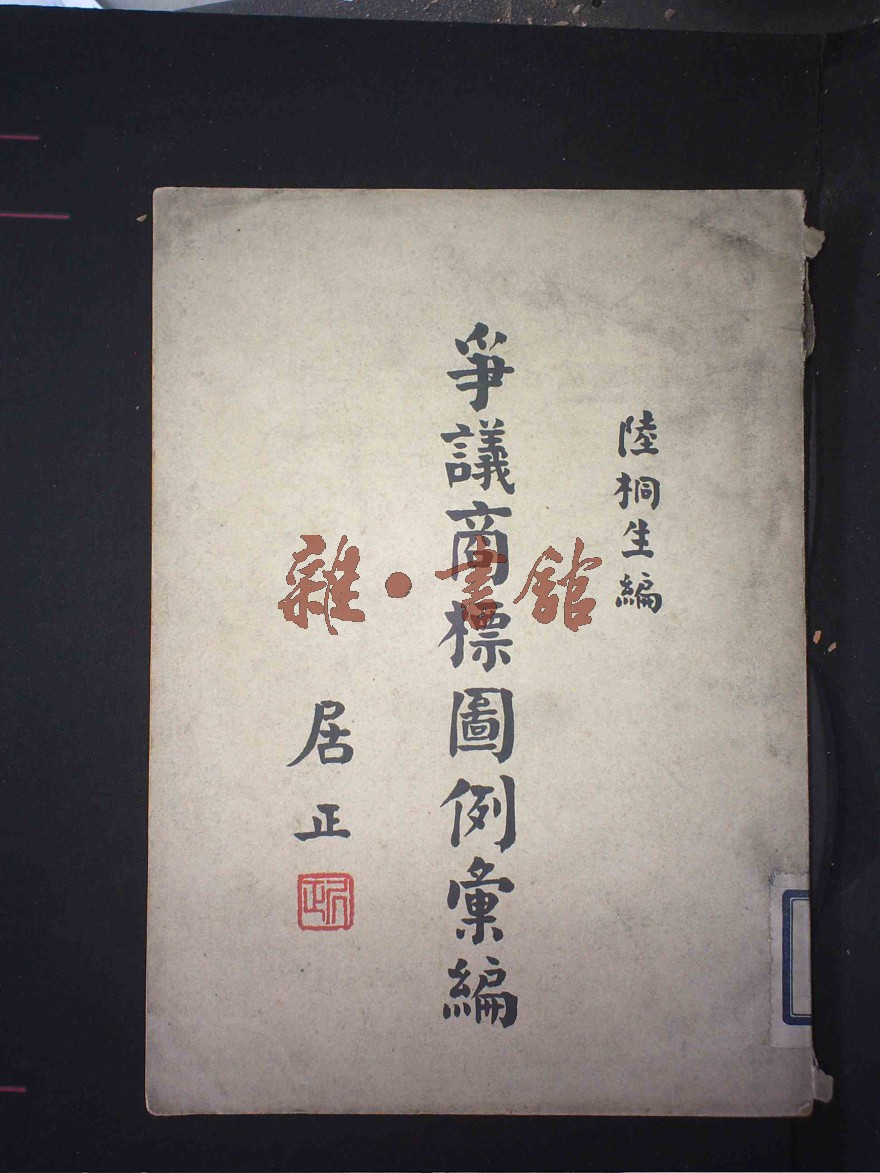 陸桐生編
爭議商標圖例彙編
居正
雜·書館